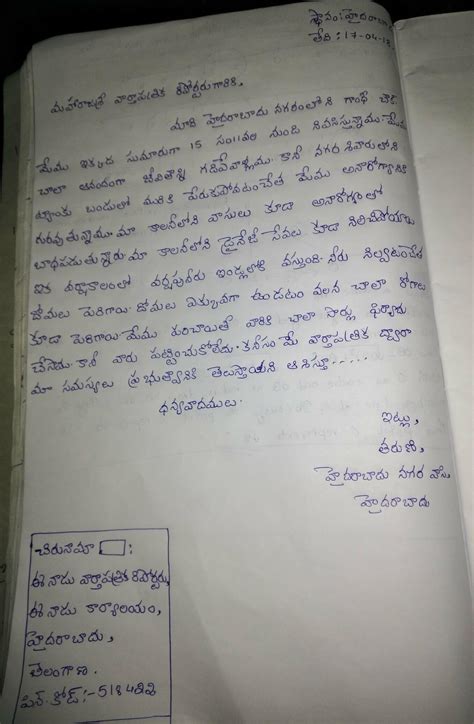 స్థానం: హైదరాబా
తేది: 17-04-18
మహారాజశ్రీ వార్తాపత్రిక రిపోర్టరు గారికి,
మాది హైదరాబాదు నగరంలోని గాంధీ చౌక్.
మేము ఇక్కడ సుమారుగా 15 సం॥వల నుండి నివసిస్తున్నాము. మేము
చాలా ఆనందంగా జీవితాన్ని గడిపేవాళ్ళము. కానీ నగర శివారులోని
ట్యాంకు బండులో మురికి పేరుకుపోవటంచేత మేము అనారోగ్యానికి
గురవుతున్నాము. మా కాలనీలోని వాసులు కూడా అనారోగ్యంతో
బాధపడుతున్నారు. మా కాలనీలోని డ్రైనేజీ సేవలు కూడా నిలిచిపోయాయి
ఇక వర్షాకాలంలో వర్షపునీరు ఇండ్లలోకి వస్తుంది. నీరు నిల్వటంచేత
దోమలు పెరిగాయి. దోమలు ఎక్కువగా ఉండటం వలన చాలా రోగాలు
కూడా పెరిగాయి. మేము పంచాయితీ వారికి చాలా సార్లు ఫిర్యాదు
చేసినము. కానీ వారు పట్టించుకోలేదు. కనీసం మీ వార్తాపత్రిక ద్వారా
మా సమస్యలు ప్రభుత్వానికి తెలుస్తాయని ఆశిస్తూ......
ధన్యవాదములు.
ఇట్లు,
తరుణి,
హైదరాబాదు నగర వాసి,
హైదరాబాదు
చిరునామా :
ఈనాడు వార్తాపత్రిక రిపోర్టరు,
ఈనాడు కార్యాలయం,
హైదరాబాదు,
తెలంగాణ.
పిన్ కోడ్:-5184